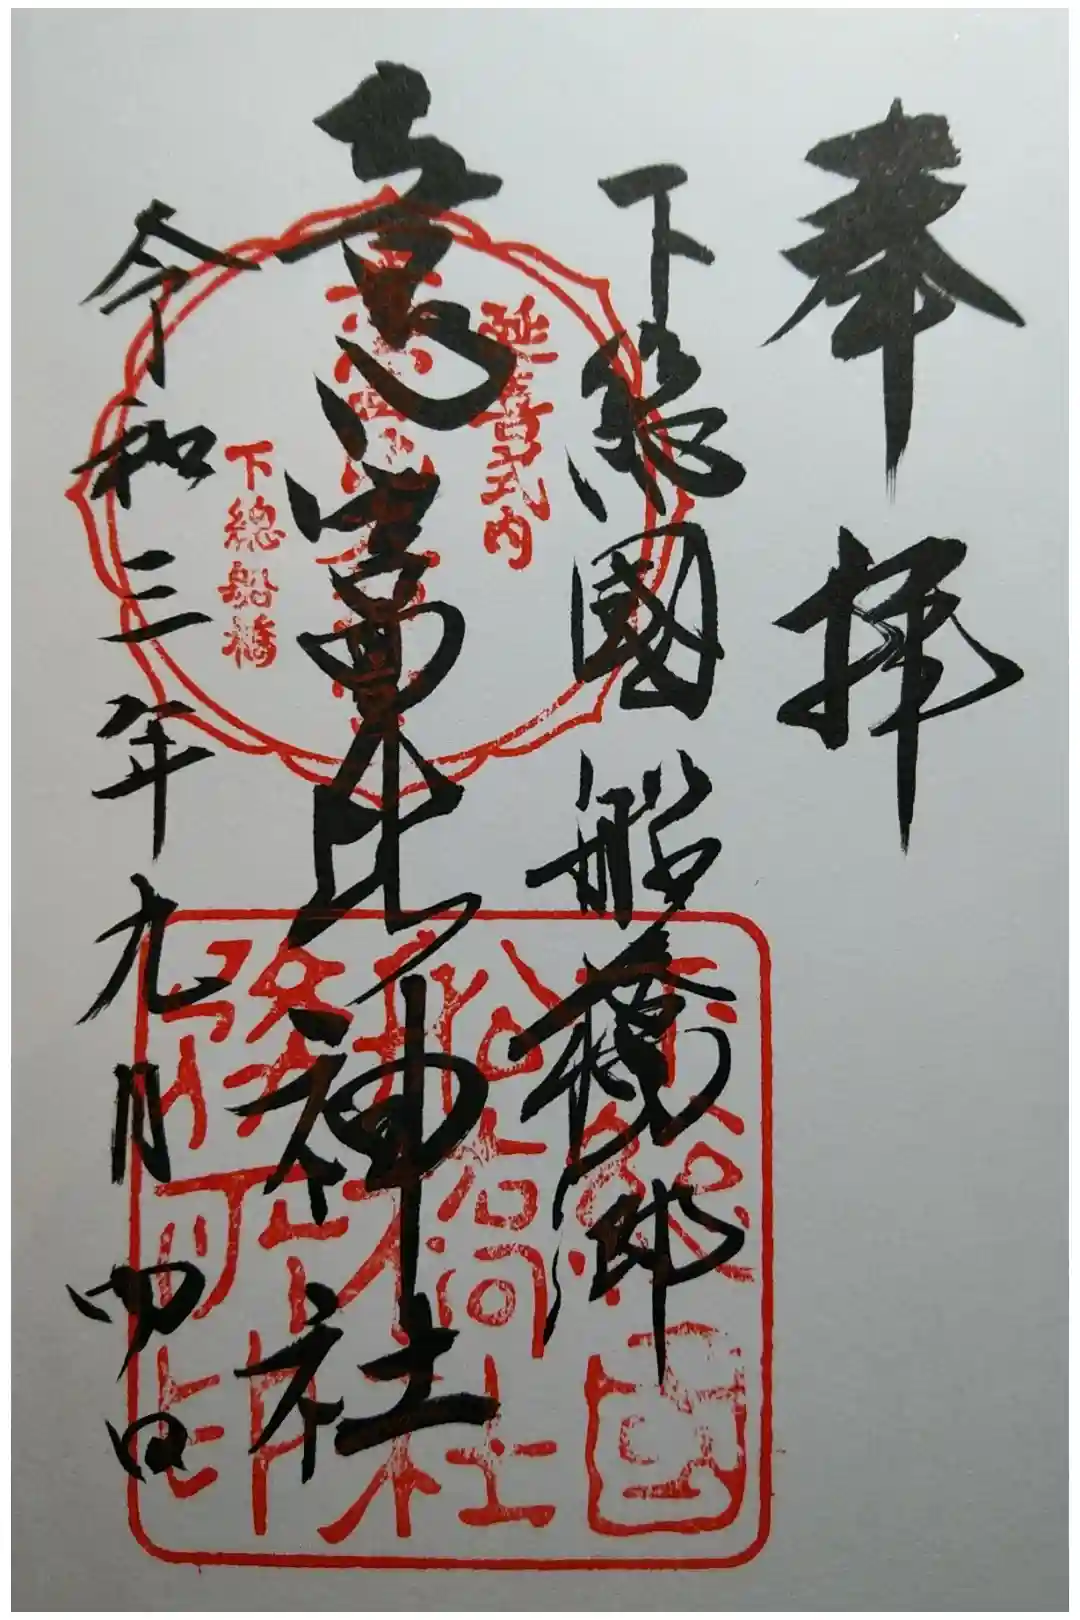 奉拝
下総國船橋郷
意富比神社
令和三年九月四日
延喜式内
下總船橋